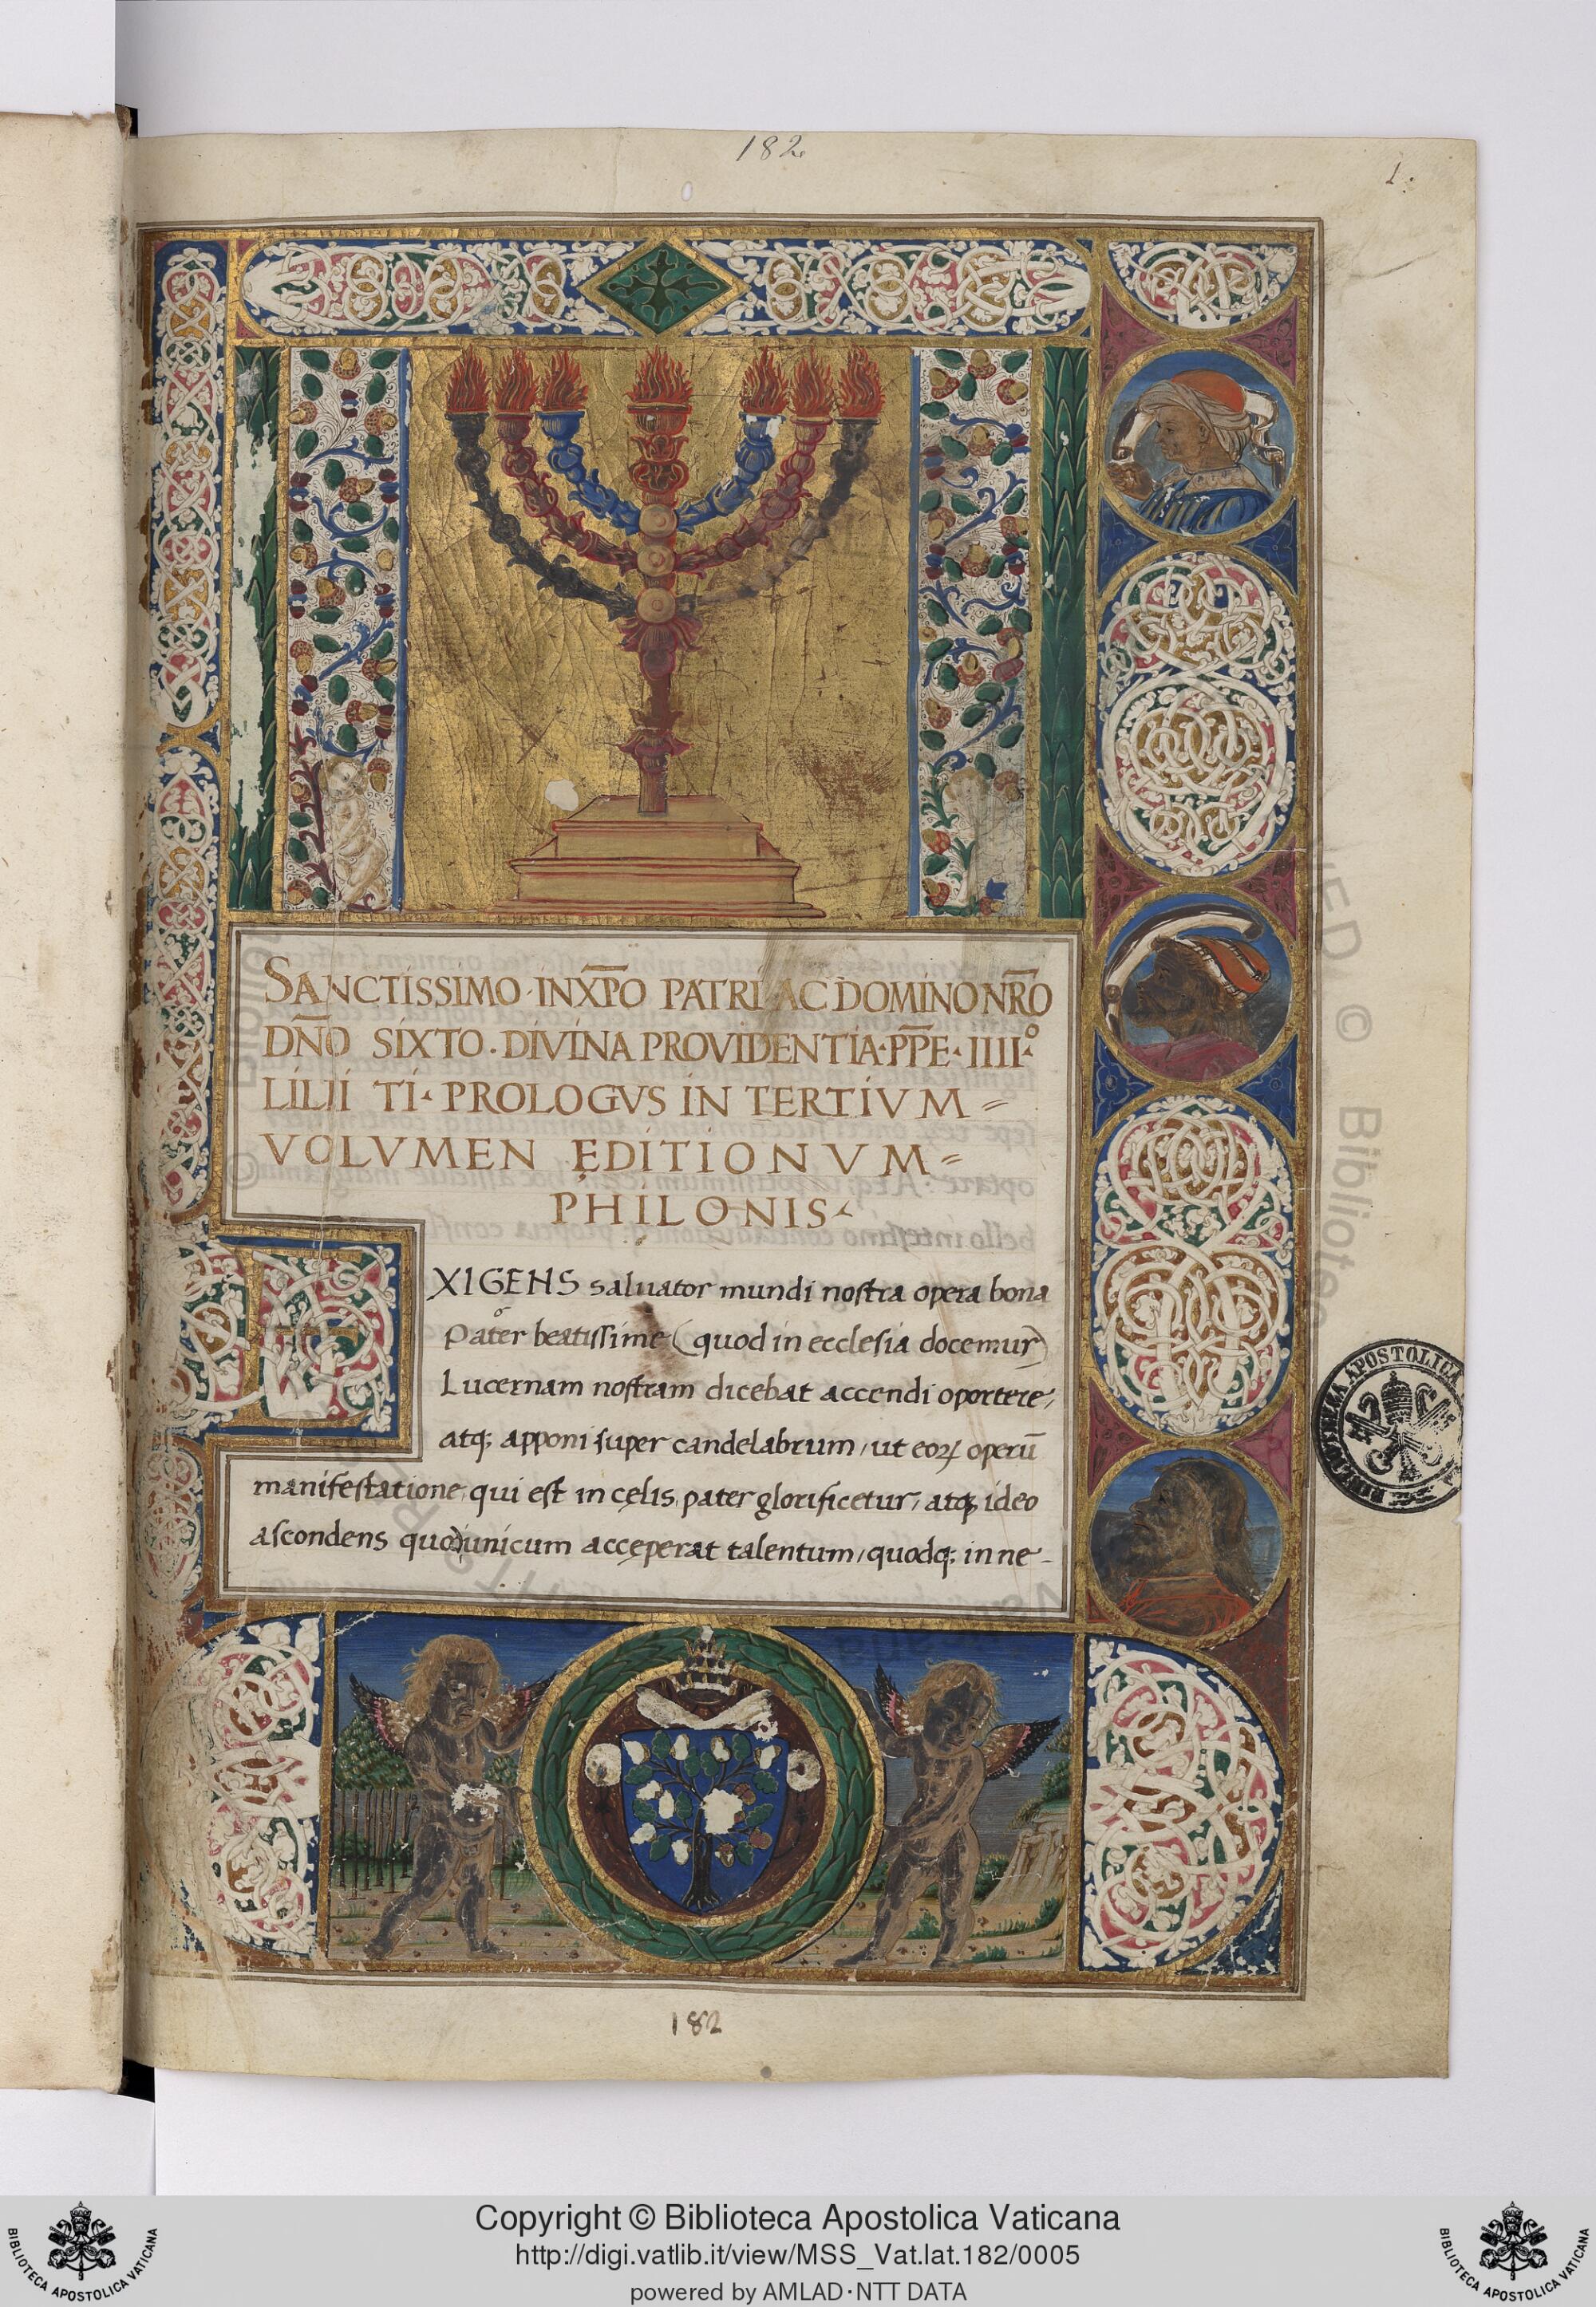 182
1.
SANCTISSIMO · IN XP̄O PATRI AC DOMINO NR̄O
DN̄O SIXTO · DIVINA PROVIDENTIA · PP̄E · IIII°
LILII TI · PROLOGVS IN TERTIVM =
VOLVMEN EDITIONVM =
PHILONIS
EXIGENS saluator mundi nostra opera bona
Pater beatissime (quod in ecclesia docemur)
Lucernam nostram dicebat accendi oportere,
atq; apponi super candelabrum, ut eoꝝ operū
manifestatione, qui est in cęlis, pater glorificetur, atq; ideo
ascondens quod unicum acceperat talentum, quodq; in ne-
182
BIBLIOTECA APOSTOLICA
Copyright © Biblioteca Apostolica Vaticana
http://digi.vatlib.it/view/MSS_Vat.lat.182/0005
powered by AMLAD·NTT DATA
BIBLIOTECA APOSTOLICA VATICANA
BIBLIOTECA APOSTOLICA VATICANA